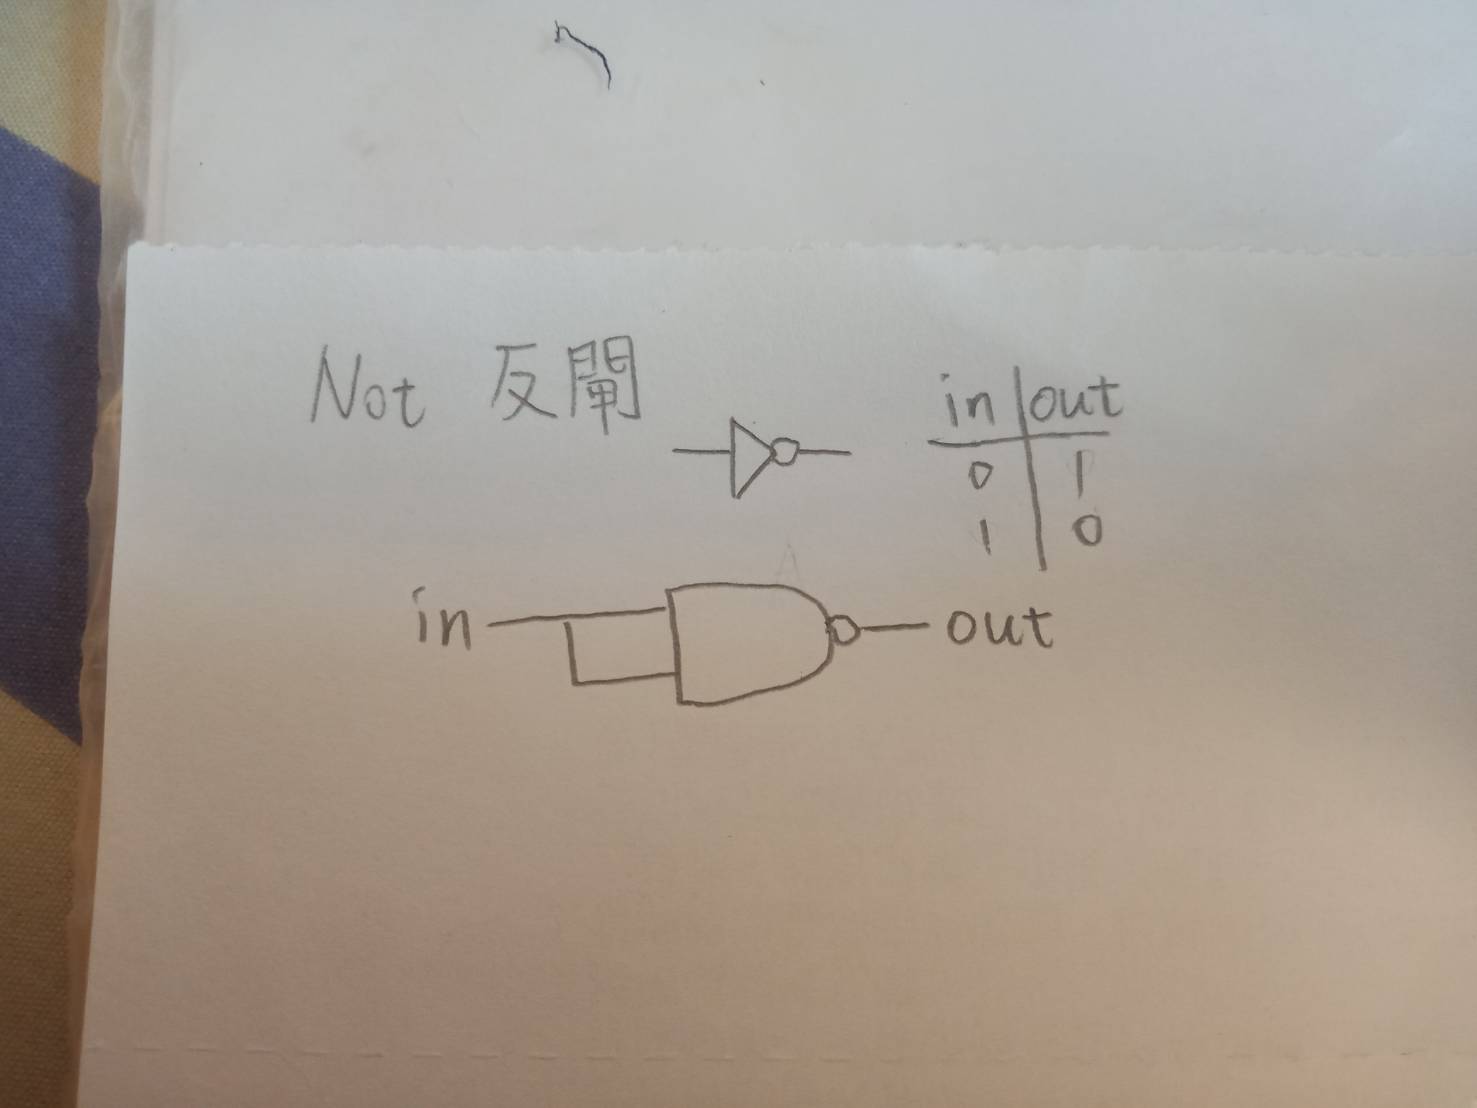 Not 反閘
in out
0 1
1 0
in out